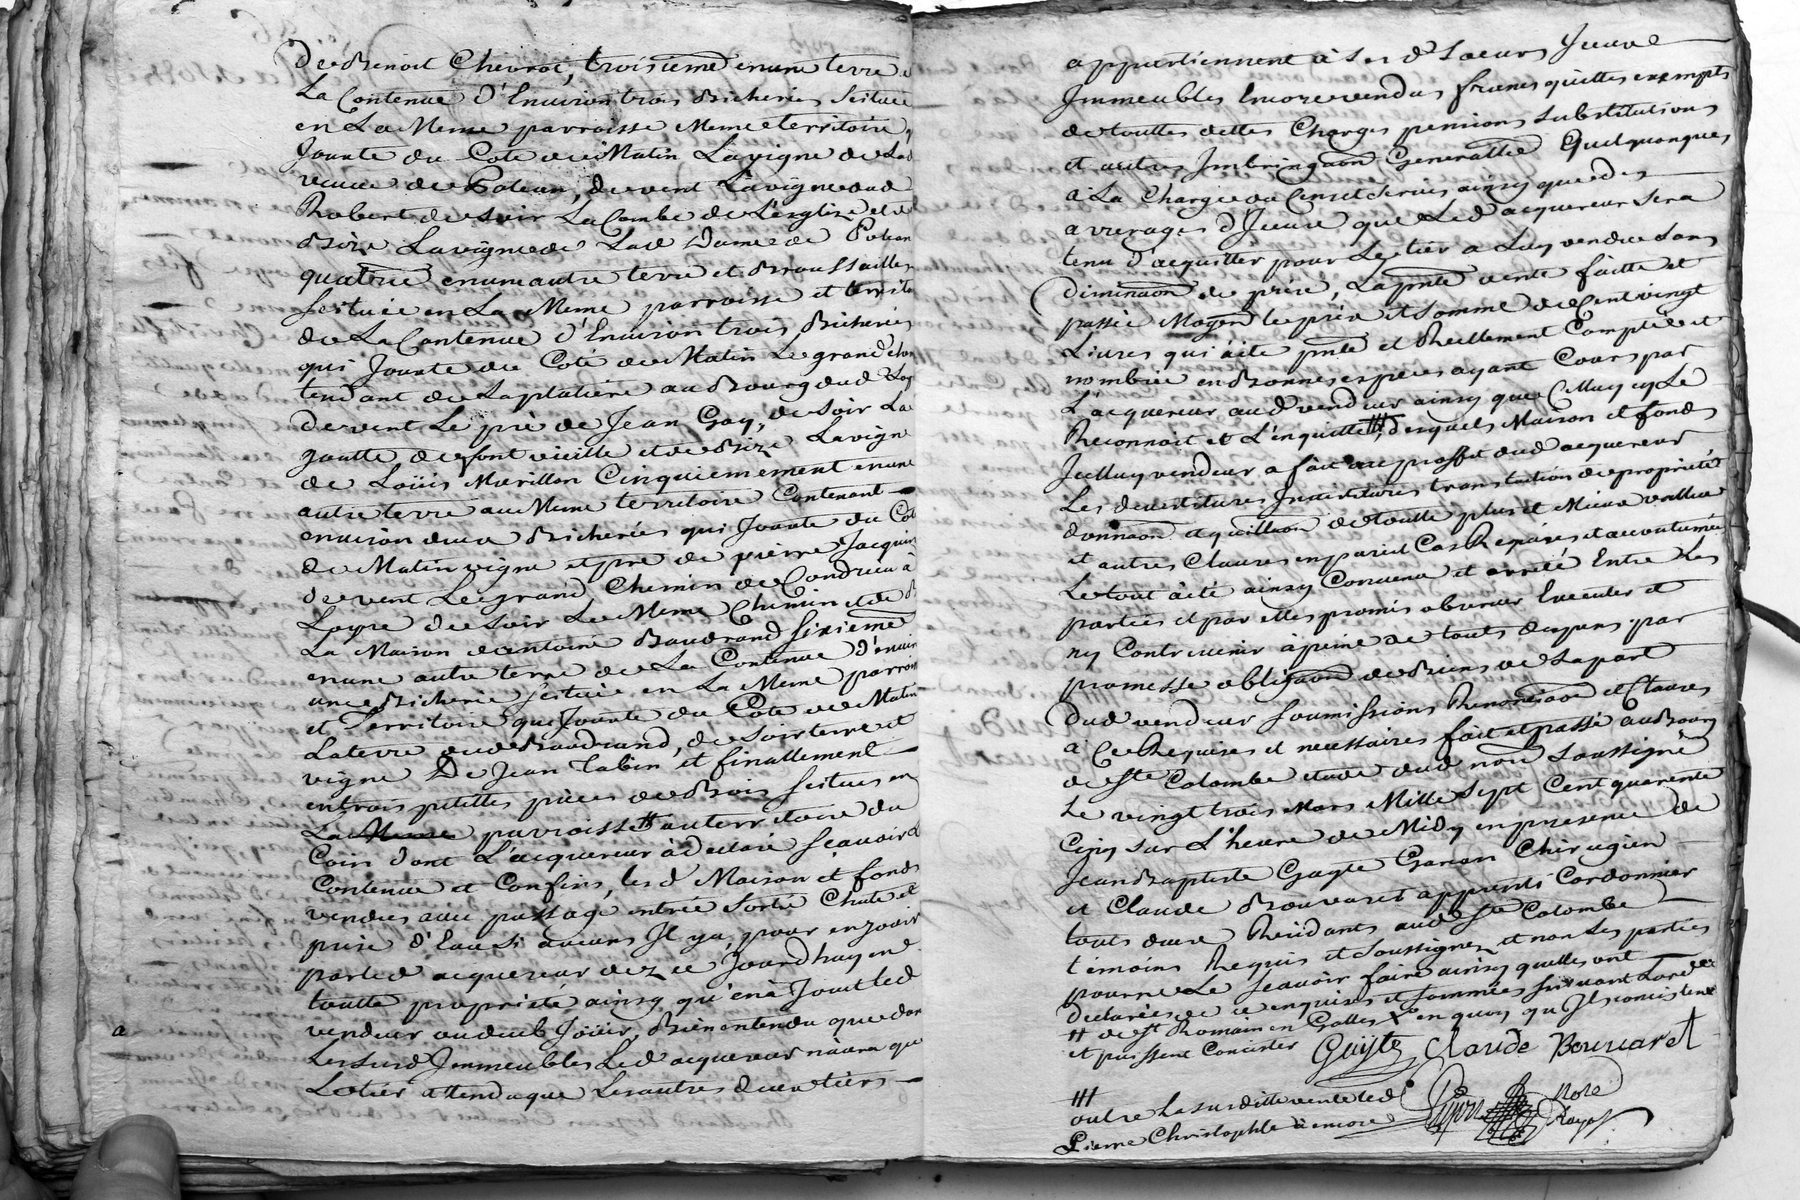 de Benoit Chevrot, troisieme en une terre de
La Contenue d'Environ trois Bicherées scituée
en La Meme parroisse Meme territoire,
Jouxte du Coté de Matin La vigne de Lad
veuve de Poleau, de vent La vigne dud
Robert de soir La Combe de L'esglize et de
Bize La vigne de Lad Dame de Poleau
quatrie en une autre terre et Broussailles
scituée en La Meme parroisse et territe
de La Contenue d'Environ trois Bicherées
qui Jouxte du Coté de Matin Le grand chem
tendant de Laplatiere au Bourg dud Loy
de vent Le pré de Jean Gay, de soir La
goutte de font vieille et de Bize La vigne
de Loüis Murillon Cinquiemement en une
autre terre au Meme territoire Contenant
environ deux Bicherées qui Jouxte du Coté
de Matin vigne et pré de pierre Jacquin
de vent Le grand Chemin de Condrieu à
Loyre de soir Le Meme Chemin et de B
La Maison d'entoine Baudrand sixieme
en une autre terre de La Contenue d'envir
une Bicherée scituée en La Meme parrois
et Territoire qui Jouxte du Coté de Matin
La terre dud Baudrand, de soir terre et
vigne De Jean Tabin et finallement
en trois petittes pieces de Bois scitues en
La Meme parroisse # au territoire du
Coin dont L'acquereur à Declaré sçavoir La
Contenue et Confins, les d Maison et fonds
vendus avec passage entrée sortie Chute et
prise d'Eau si aucuns Il y a, pour en Joüir
par led acquereur dez ce Jourdhuy en
toutte proprieté ainsy qu'en à Jouit led
vendeur ou deub Joüir, Bien entendu que dans
Les susd Immeubles Led acquereur n'aura que
Le tier attendu que Les autres deux tiers
a
appartiennent à ses d soeurs Iceux
Immeubles Encore vendus francs quittes exempts
de touttes dettes Charges pensions substitutions
et autres Imbringaon Generallt Quelquonques
à La Charge du Cens et servis ainsy que des
arrerages d'Iceux que Led acquereur sera
tenu d'acquitter pour Le tier a Luy vendu sans
Diminuaon de prix, La pnte vente faitte et
passée Moyent le prix et somme de Cent vingt
Livres qui à été pnte et Reellement Comptée et
nombrée en Bonnes especes ayant Cours par
L'acquereur aud vendeur ainsy que Celluy cy Le
Reconnoit et L'en quitte #, desquels Maison et fonds
Icelluy vendeur a fait au proffit dud acquereur
Les devestitures Investitures translation de proprieté
donnaon aquillaon de toutte plus et Mieux vallue
et autres Clauses en pareil Cas Requises et accoutumées
Le tout à été ainsy Convenu et arreté Entre Les
parties et par elles promis observer Executer et
ny Contrevenir à peine de touts depans par
promesse obligaon de Biens de La part
Dud vendeur soumissions Renonciaon et Clauses
à Ce Requises et necessaires fait et passé au Bourg
de Ste Colombe etude dud nore soussigné
Le vingt trois Mars Mille sept Cent quarente
Cinq sur L'heure de Midy en presence de
Jean Baptiste Guyte Garson Chirugien
et Claude Bouvaret apprenti Cordonnier
touts deux Residants aud Ste Colombe
témoins Requis et soussignez et non Les parties
pour ne Le sçavoir faire ainsy quelles ont
declarées de ce enquises et sommées suivant Lord
# de St Romain en Galles X en quoy qu Ils consistent
et puissent Concister Guyte Claude Bouvaret
#
outre La susditte vente led
Pierre Christophle à encore
Nore
Royal